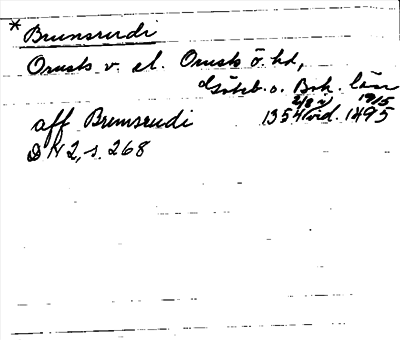 * Brunsrudi
Orusts v. el. Orusts ö. hd,
Göteb. o. Boh. län
2/8 1915
aff Bremsrudi 1354 vid. 1495
DN 2, s. 268